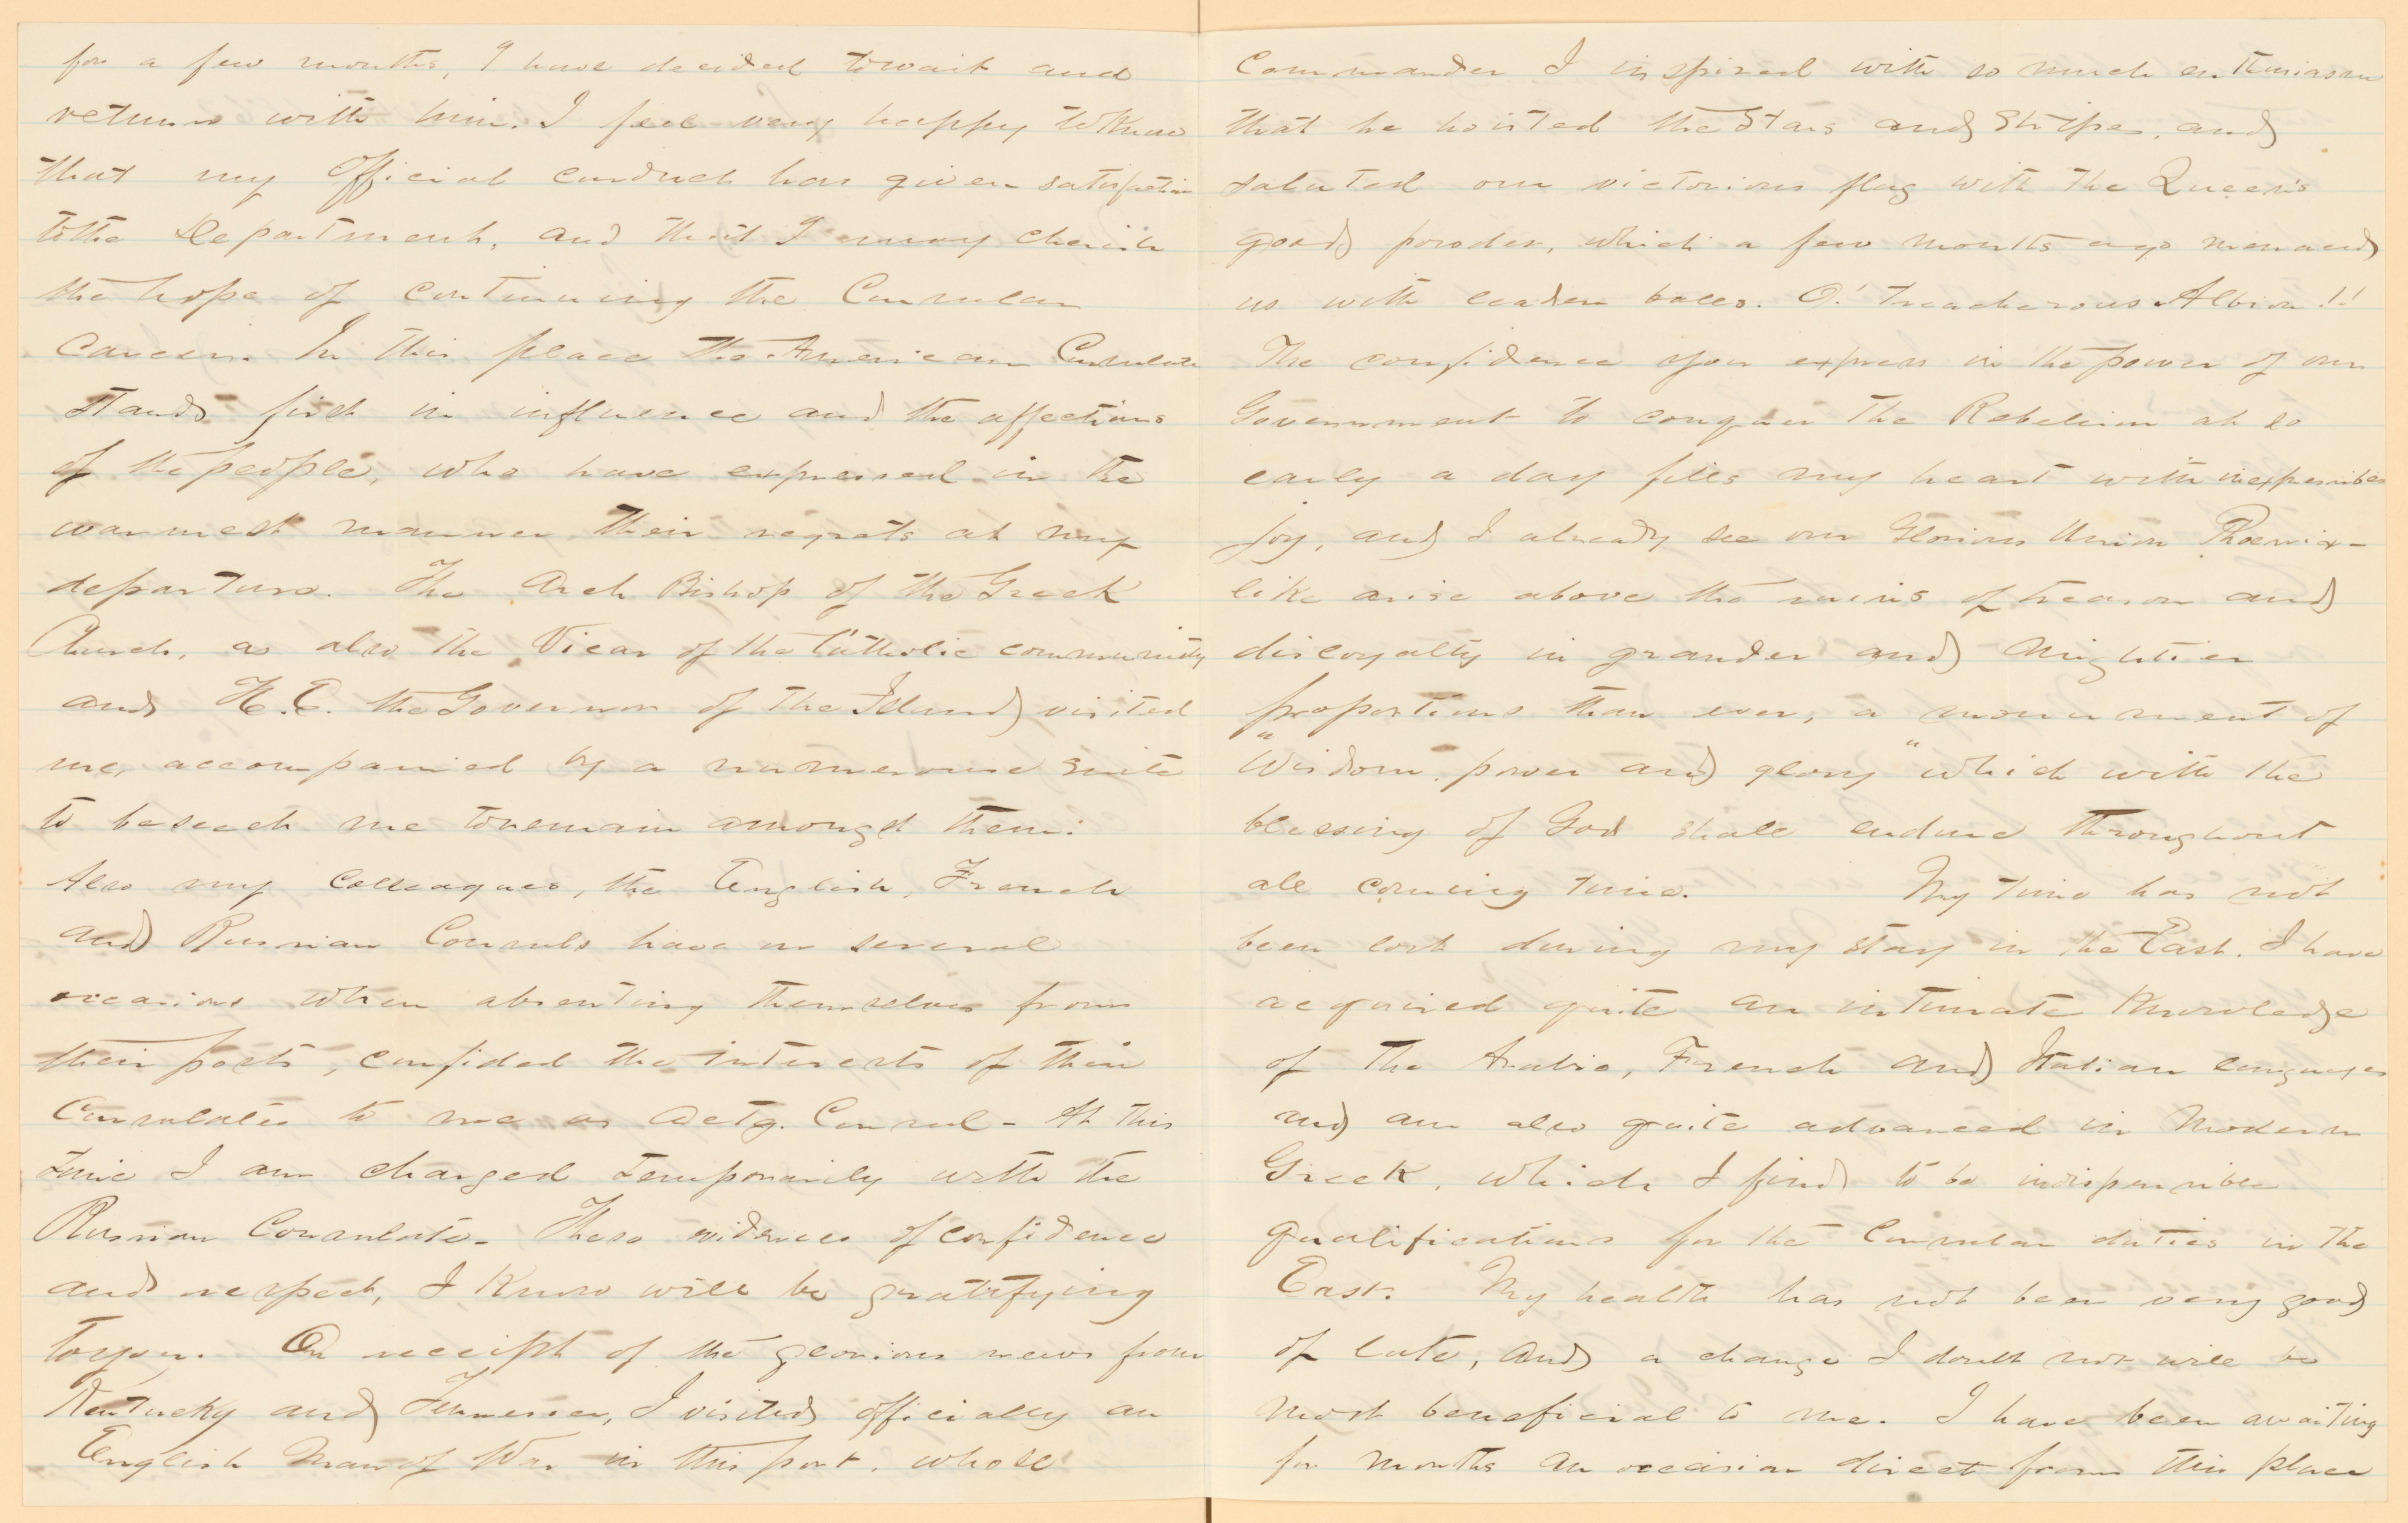 for a few months, I have decided to wait and
return with him. I feel very happy to know
that my official conduct has given satisfaction
to the Department, and that I may cherish
the hope of continuing the Consular
Career. In this place the American Consulate
stands first in influence and the affections
of the people, who have expressed in the
warmest manner their regrets at my
departure. The Arch Bishop of the Greek
Church, as also the Vicar of the Catholic community
and H.E. the Governor of the Island visited
me, accompanied by a numerouse suite
to beseech me to remain amongst them:
Also my Colleagues, the English, French
and Russian Consuls have on several
occasions when absenting themselves from
their posts, confided the interests of their
Consulates to me as Actg. Consul - At this
time I am charged temporarily with the
Russian Consulate. These evidences of confidence
and respect, I know will be gratifying
to you. On receipt of the glorious news from
Kentucky and Tennessee, I visited officially an
English Man of War in this port, whose
Commander I inspired with so much enthusiasm
that he hoisted the Stars and Stripes, and
saluted our victorious flag with the Queen's
good powder, which a few months ago menaced
us with leaden balls. O! treacherous Albion!!
The confidence you express in the power of our
Government to conquer the Rebelion at so
early a day fills my heart with inexpressible
joy, and I already see our Glorious Union Phoenix-
like arise above the ruins of treason and
disloyalty in grander and mightier
proportions than ever, a monument of
"Wisdom, power and glory" which with the
blessing of God shall endure throughout
all coming time. My time has not
been lost during my stay in the East. I have
acquired quite an intimate Knowledge
of the Arabic, French and Italian languages
and am also quite advanced in Modern
Greek, which I find to be indispensible
qualifications for the Consular duties in the
East. My health has not been very good
of late, and a change I doubt not will be
most beneficial to me. I have been awaiting
for months an occasion direct from this place